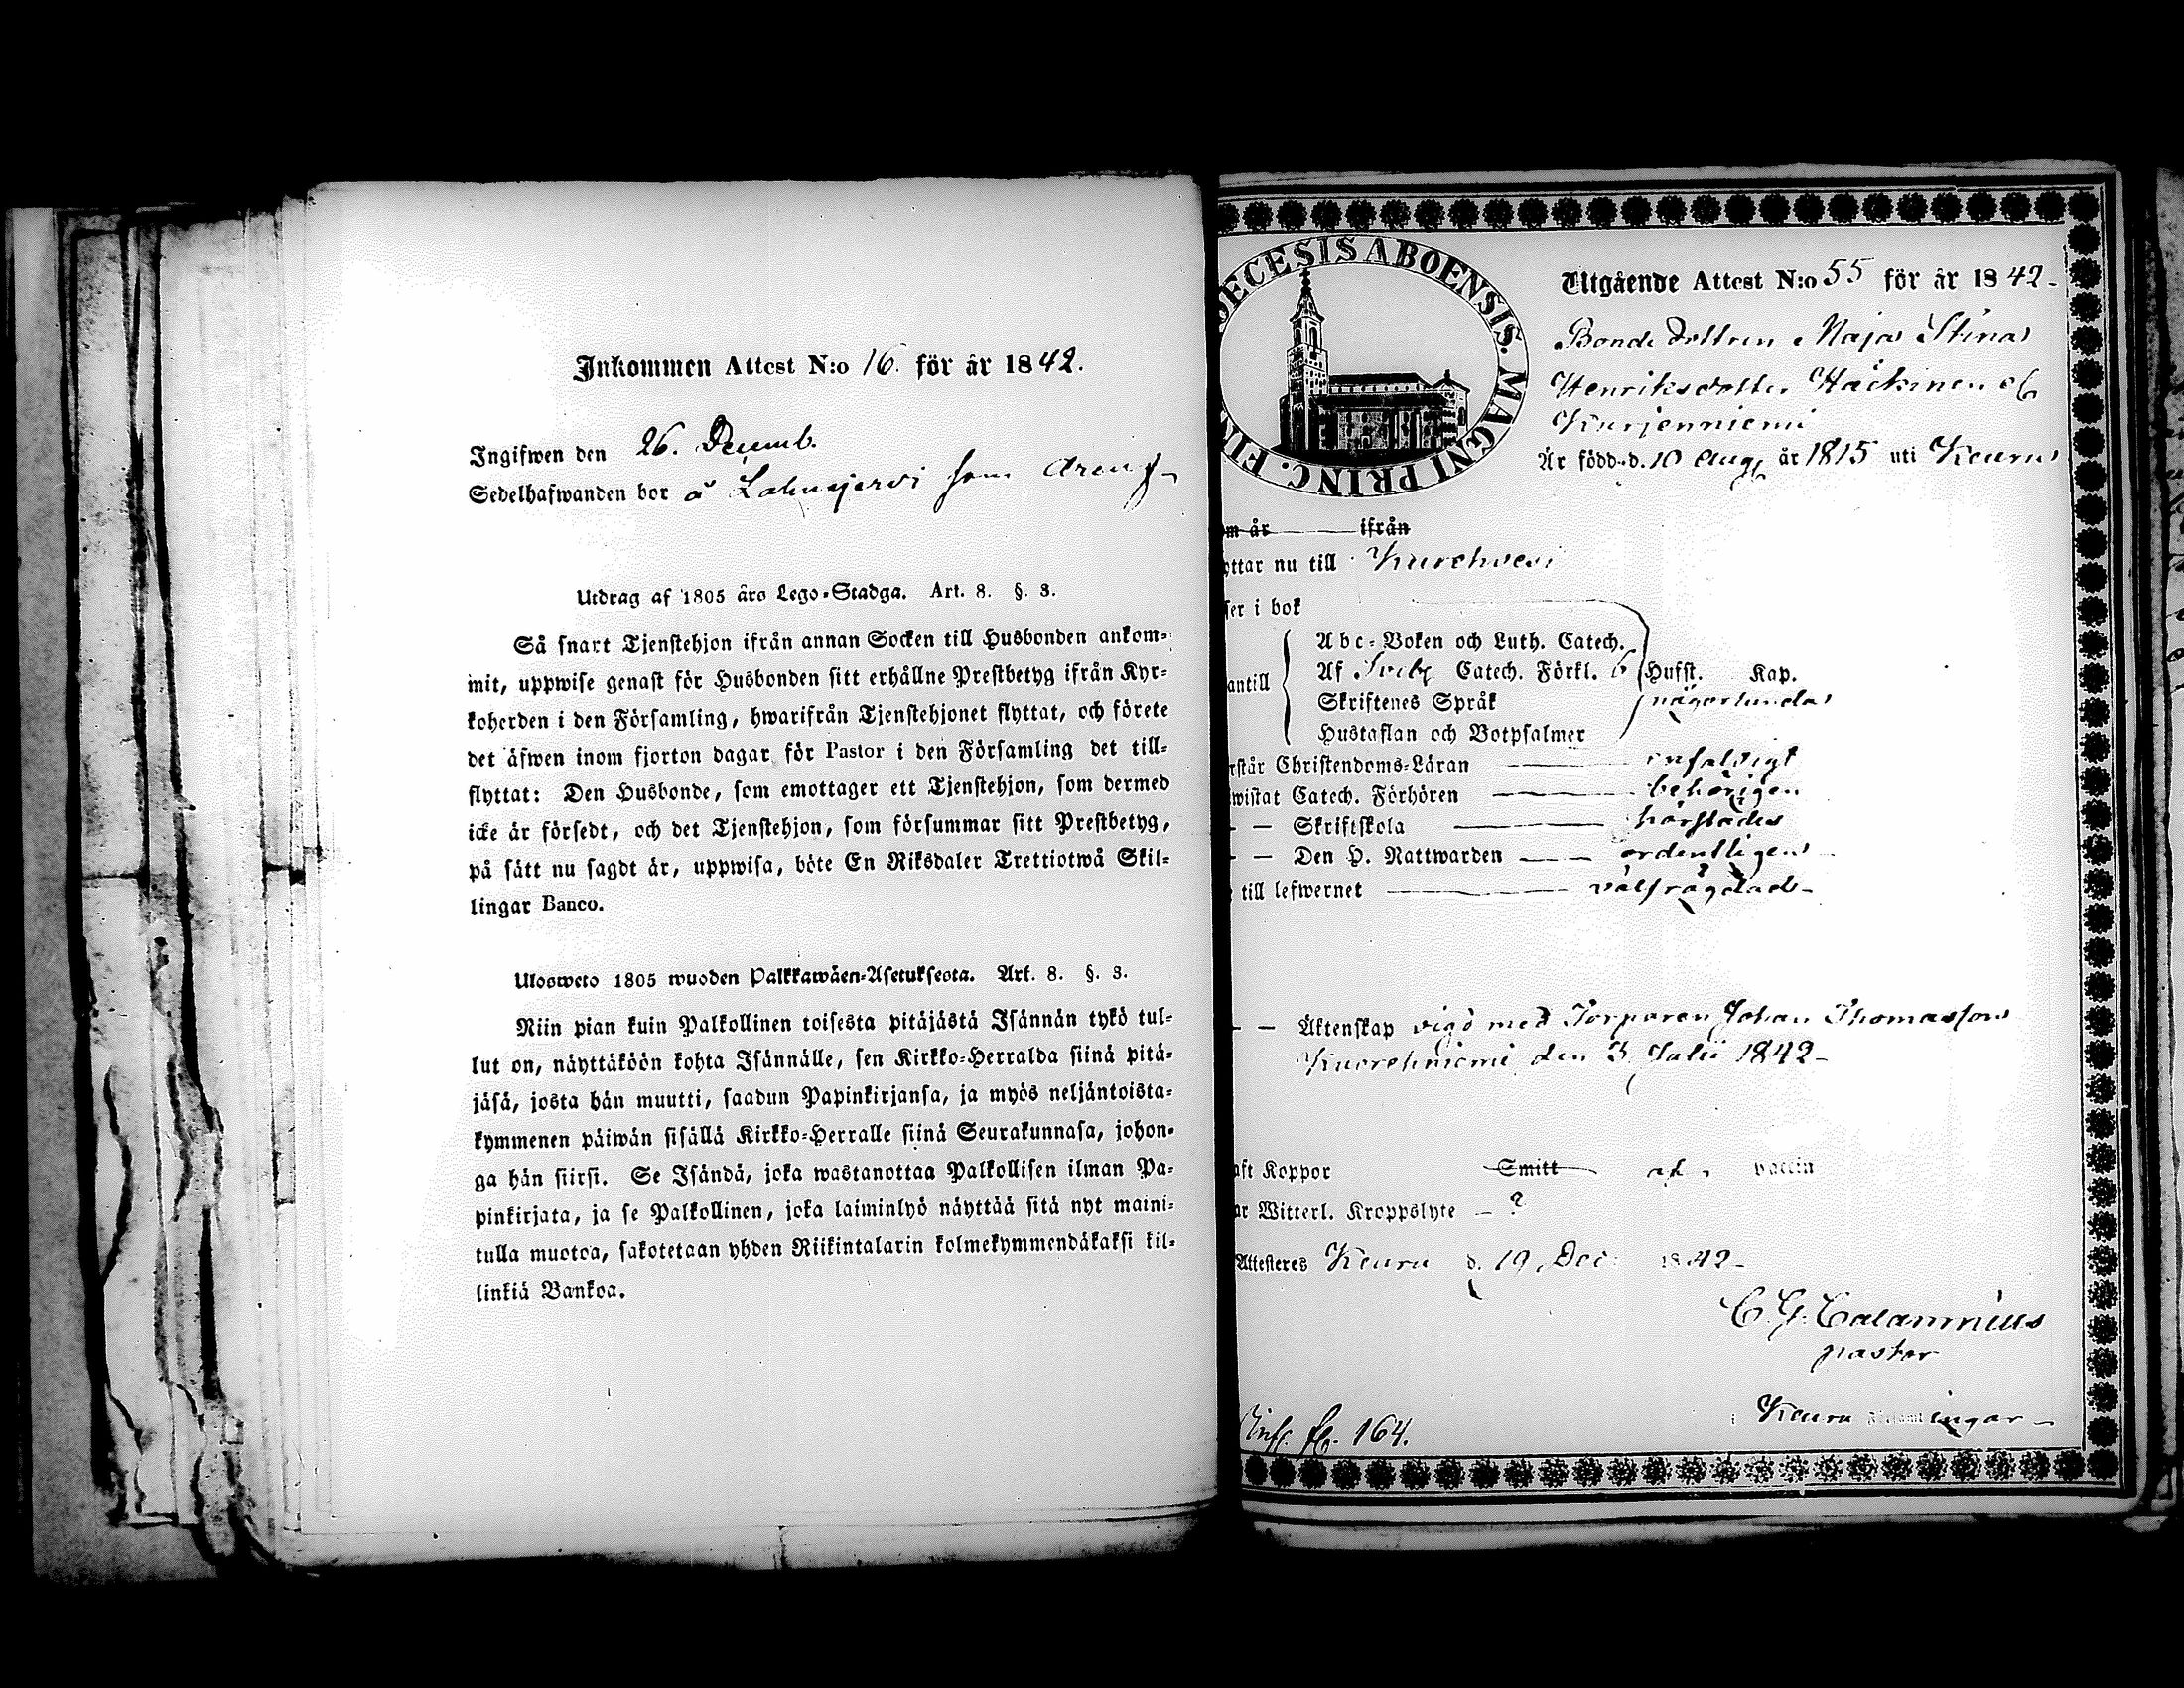 Inkommen Attest N:o 16. för år 1842.
Ingifwen den 26. Decemb.
Sedelhafwanden bor å Lahnajervi som
Utdrag af 1805 års Lego-Stadga. Art. 8. §. 3.
Så snart Tjenstehjon ifrån annan Socken till Husbonden ankom-
mit, uppwise genast för Husbonden sitt erhållne Prestbetyg ifrån Kyr-
koherden i den Församling, hwarifrån Tjenstehjonet flyttat, och förete
det äfwen inom fjorton dagar för Pastor i den Församling det till-
flyttat: Den Husbonde, som emottager ett Tjenstehjon, som dermed
icke är försedt, och det Tjenstehjon, som försummar sitt Prestbetyg,
på sätt nu sagdt är, uppwisa, böte En Riksdaler Trettiotwå Skil-
lingar Banco.
Ulosweto 1805 wuoden Palkkawäen-Asetuksesta. Art. 8. §. 3.
Niin pian kuin Palkollinen toisesta pitäjästä Isännän tykö tul-
lut on, näyttäköön kohta Isännälle, sen Kirkko-Herralda siinä pitä-
jäsä, josta hän muutti, saadun Papinkirjansa, ja myös neljäntoista-
kymmenen päiwän sisällä Kirkko-Herralle siinä Seurakunnasa, johon-
ga hän siirsi. Se Isändä, joka wastanottaa Palkollisen ilman Pa-
pinkirjata, ja se Palkollinen, joka laiminlyö näyttää sitä nyt maini-
tulla muotoa, sakotetaan yhden Riikintalarin kolmekymmendäkaksi kil-
linkiä Bankoa.
DECESIS ABOENSIS. MAGNI PRINC. FIN
Utgående Attest N:o 55 för år 1842-
Bonde dottren Maja Stina
Henriksdotter Häckinen af
Kurjenniemi
Är född d. 10 Aug. år 1815 uti Keuru
m år ifrån
ottar nu till Kuorehvesi
ser i bok
Abc-Boken och Luth. Catech.
antill Af Sveb. Catech. Förkl. 6 Hufst. Kap.
Skriftenes Språk någorlunda
Hustaflan och Botpsalmer
rstår Christendoms-Läran enfaldigt
wistat Catech. Förhören behörigen
- — Skriftskola
- — Den H. Nattwarden ordentligen
till lefwernet välfrägdad-
- — Äktenskap vigd med Torparen Johan Thomasson
Kuorehniemi den 3 Julii 1842-
aft Koppor Smitt af vaccin
ar Witterl. Kroppslyte - ?
Attesteres Keuru d. 19 Dec: 1842-
C. G. Calamnius
pastor
i Keuru Församlingar-
Infl. fl. 164.